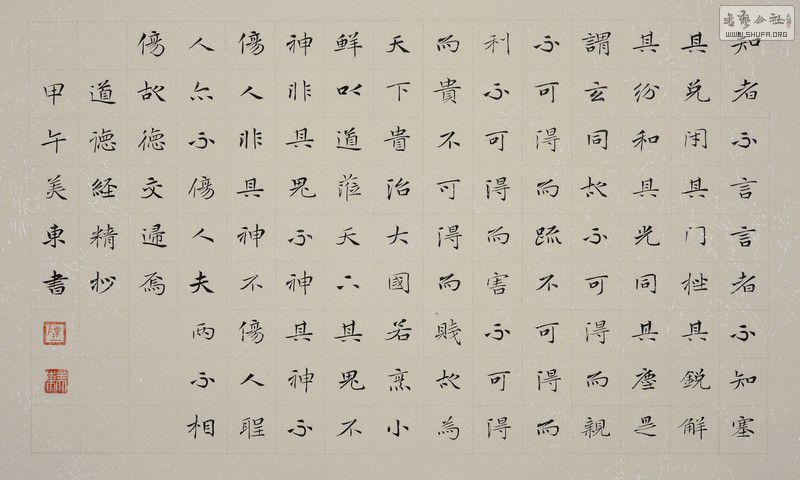 知者不言言者不知塞
其兌闭其门挫其銳解
其紛和其光同其塵是
謂玄同故不可得而親
不可得而疏不可得而
利不可得而害不可得
而貴不可得而賤故為
天下貴治大國若烹小
鮮以道蒞天下其鬼不
神非其鬼不神其神不
傷人非其神不傷人聖
人亦不傷人夫兩不相
傷故德交歸焉
道德經精抄
甲午美東書
書藝公社
WWW.SHUFA.ORG